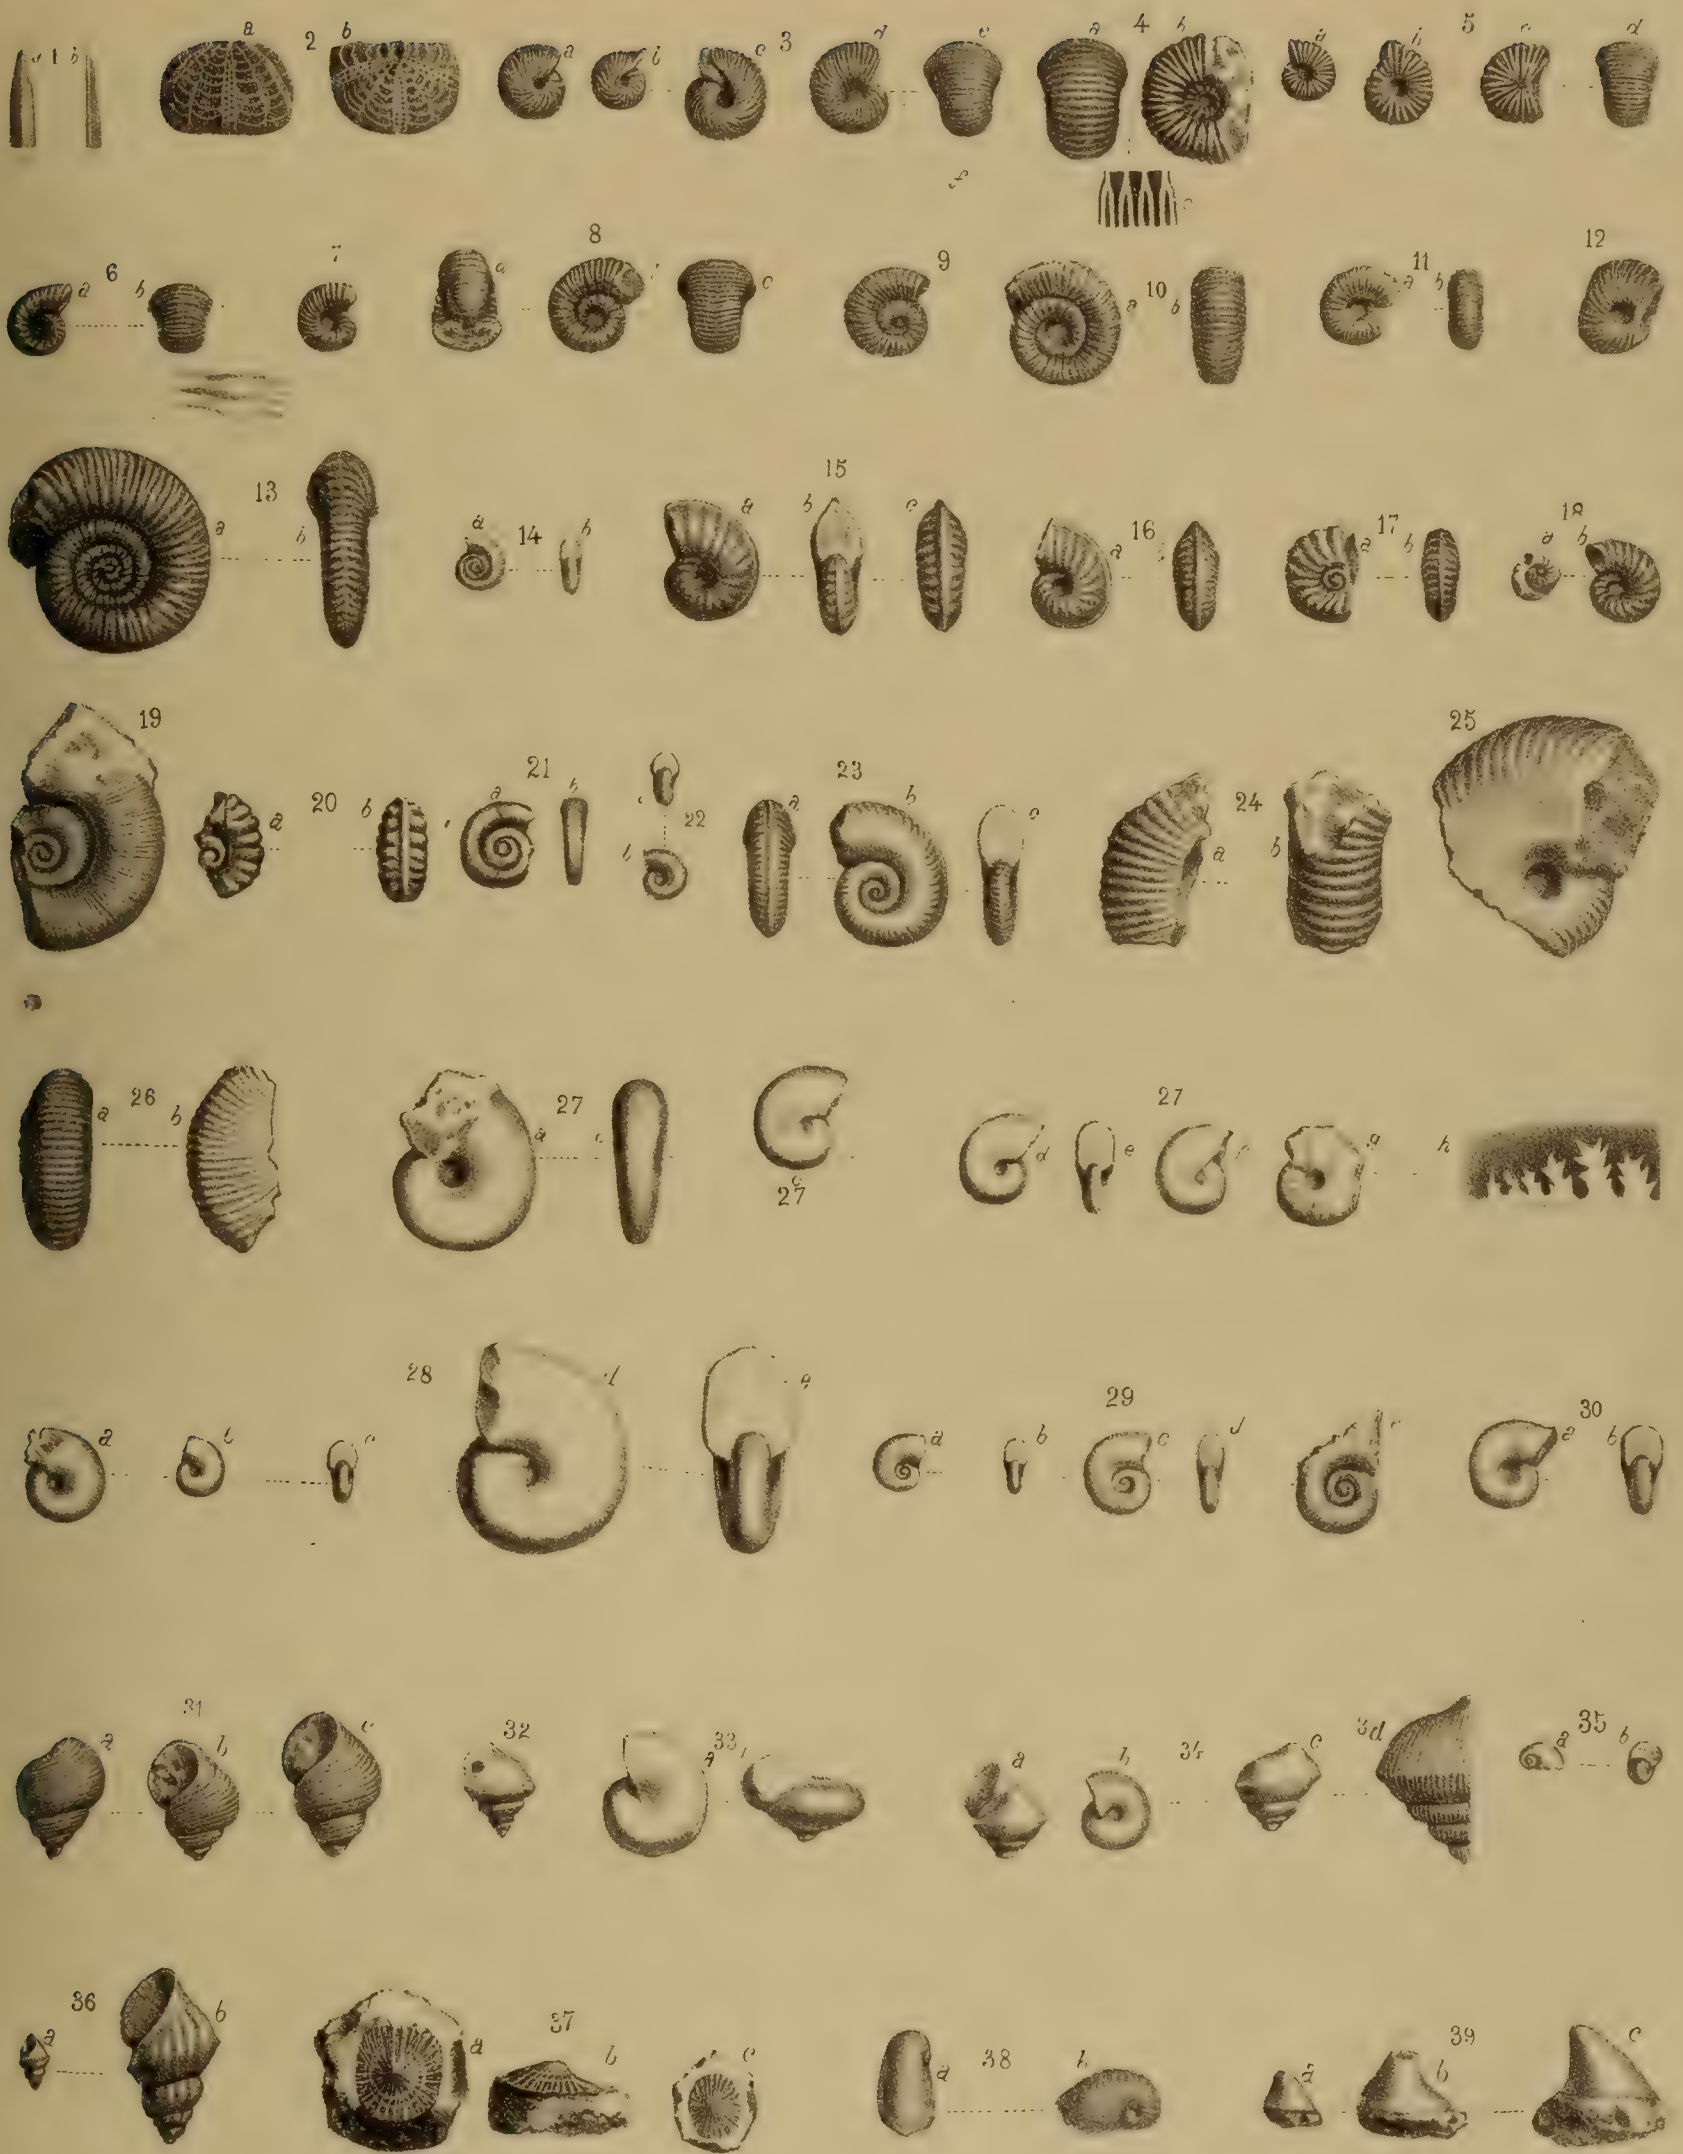 a 1 b a 2 b a b c 3 d e a 4 b a b 5 c d
f c
6 a b 7 8 a b c 9 a 10 b a 11 b 12
13 a b a 14 b 15 a b c 16 a 17 a b 18 a b
19 a 20 b 21 a b c b 22 23 a b c 24 a b 25
26 a b 27 a 27 d e 27 f g h
c
27
28 a b c d e 29 a b c d e 30 a b
31 a b c 32 33 a b 34 a b c 3d 35 a b
36 a b 37 a b c 38 a b 39 a b c